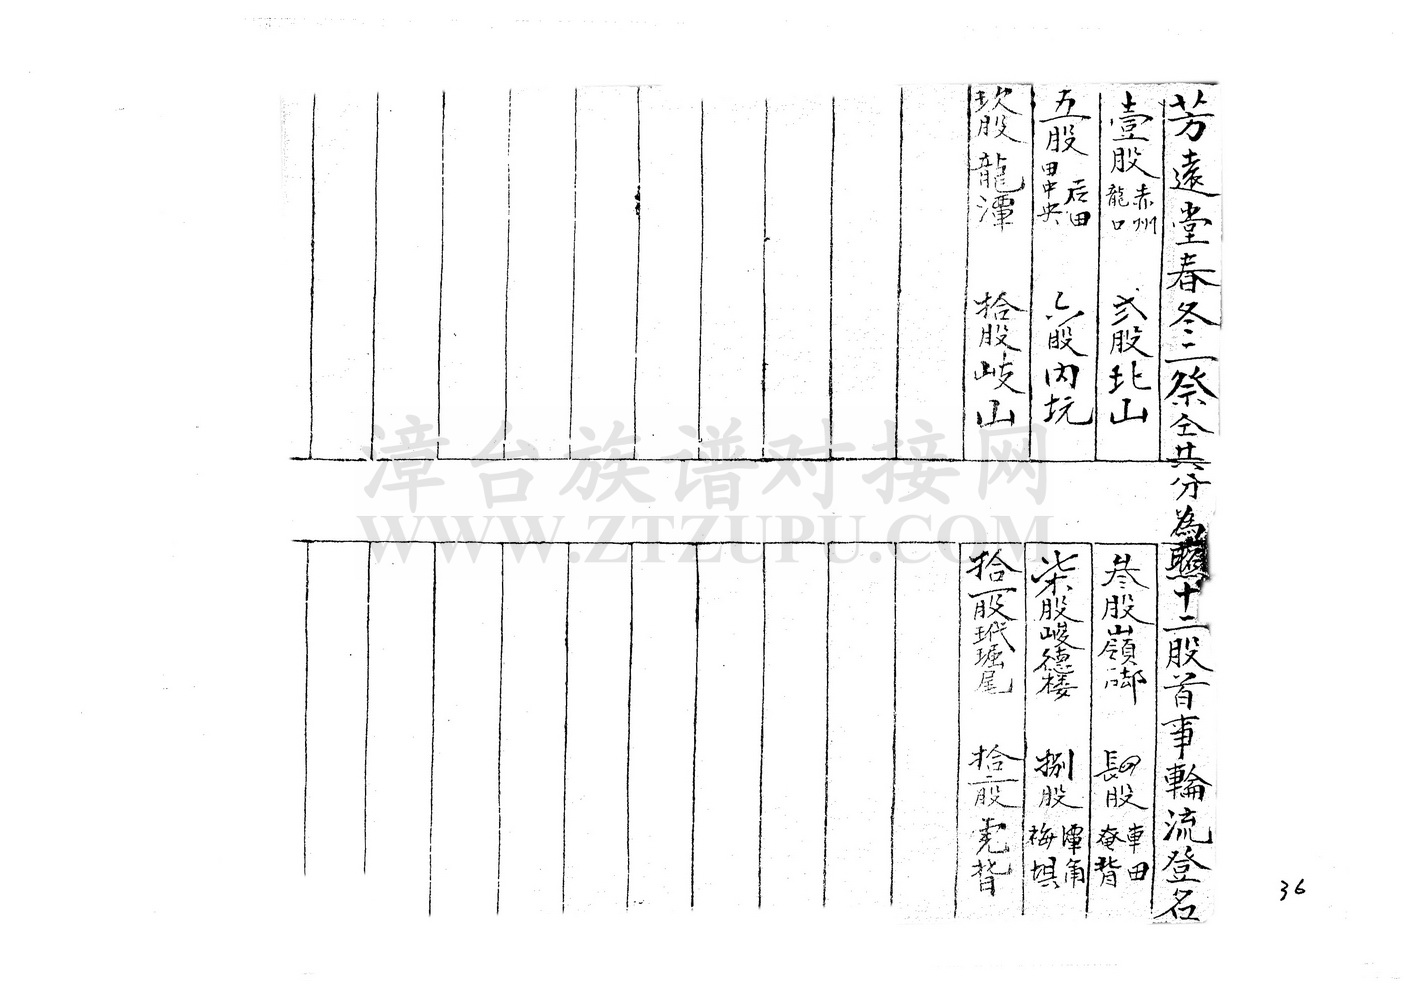 芳遠堂春冬二祭仝共分為十二股首事輪流登名
壹股 赤州 龍口
弍股 北山
五股 后田 田中央
六股 内坑
玖股 龍潭
拾股 岐山
叁股 山嶺
股 車田 庵背
柒股 峻德楼
捌股 潭角 梅埧
拾一股 尾
拾二股 背
漳台族谱对接网
WWW.ZTZUPU.COM
36